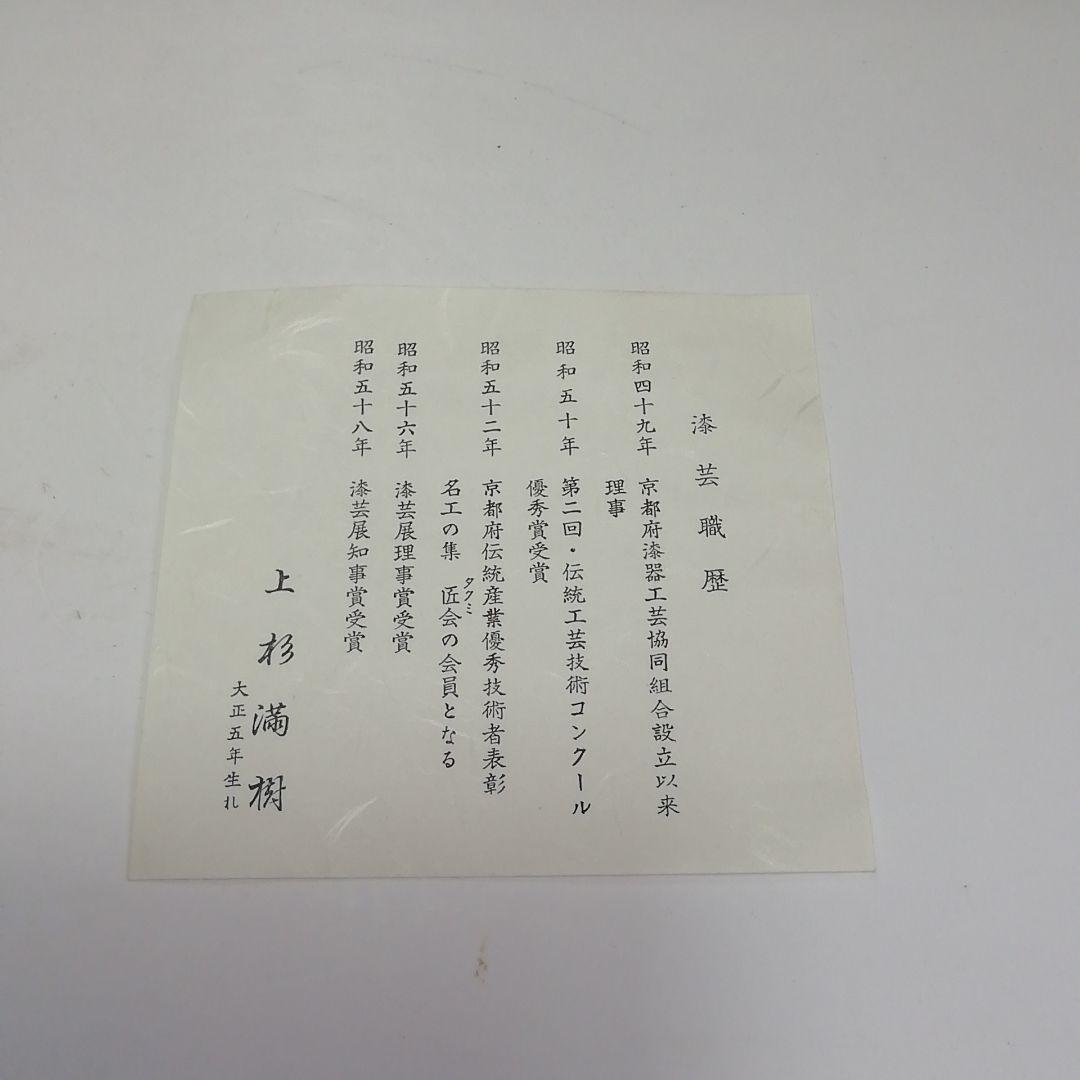 漆芸職歴
昭和四十九年　京都府漆器工芸協同組合設立以来
理事
昭和五十年　第二回・伝統工芸技術コンクール
優秀賞受賞
昭和五十二年　京都府伝統産業優秀技術者表彰
タクミ
名工の集　匠会の会員となる
昭和五十六年　漆芸展理事賞受賞
昭和五十八年　漆芸展知事賞受賞
上杉満樹
大正五年生れ